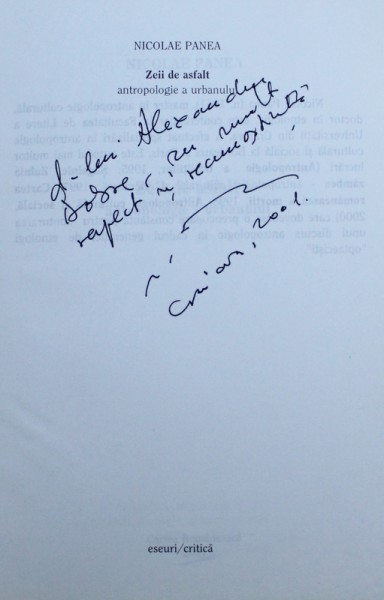 NICOLAE PANEA
Zeii de asfalt
antropologie a urbanului
d-lui Alexandru
Dobre, cu mult
respect și recunoștință
Craiova, 2001.
eseuri/critică